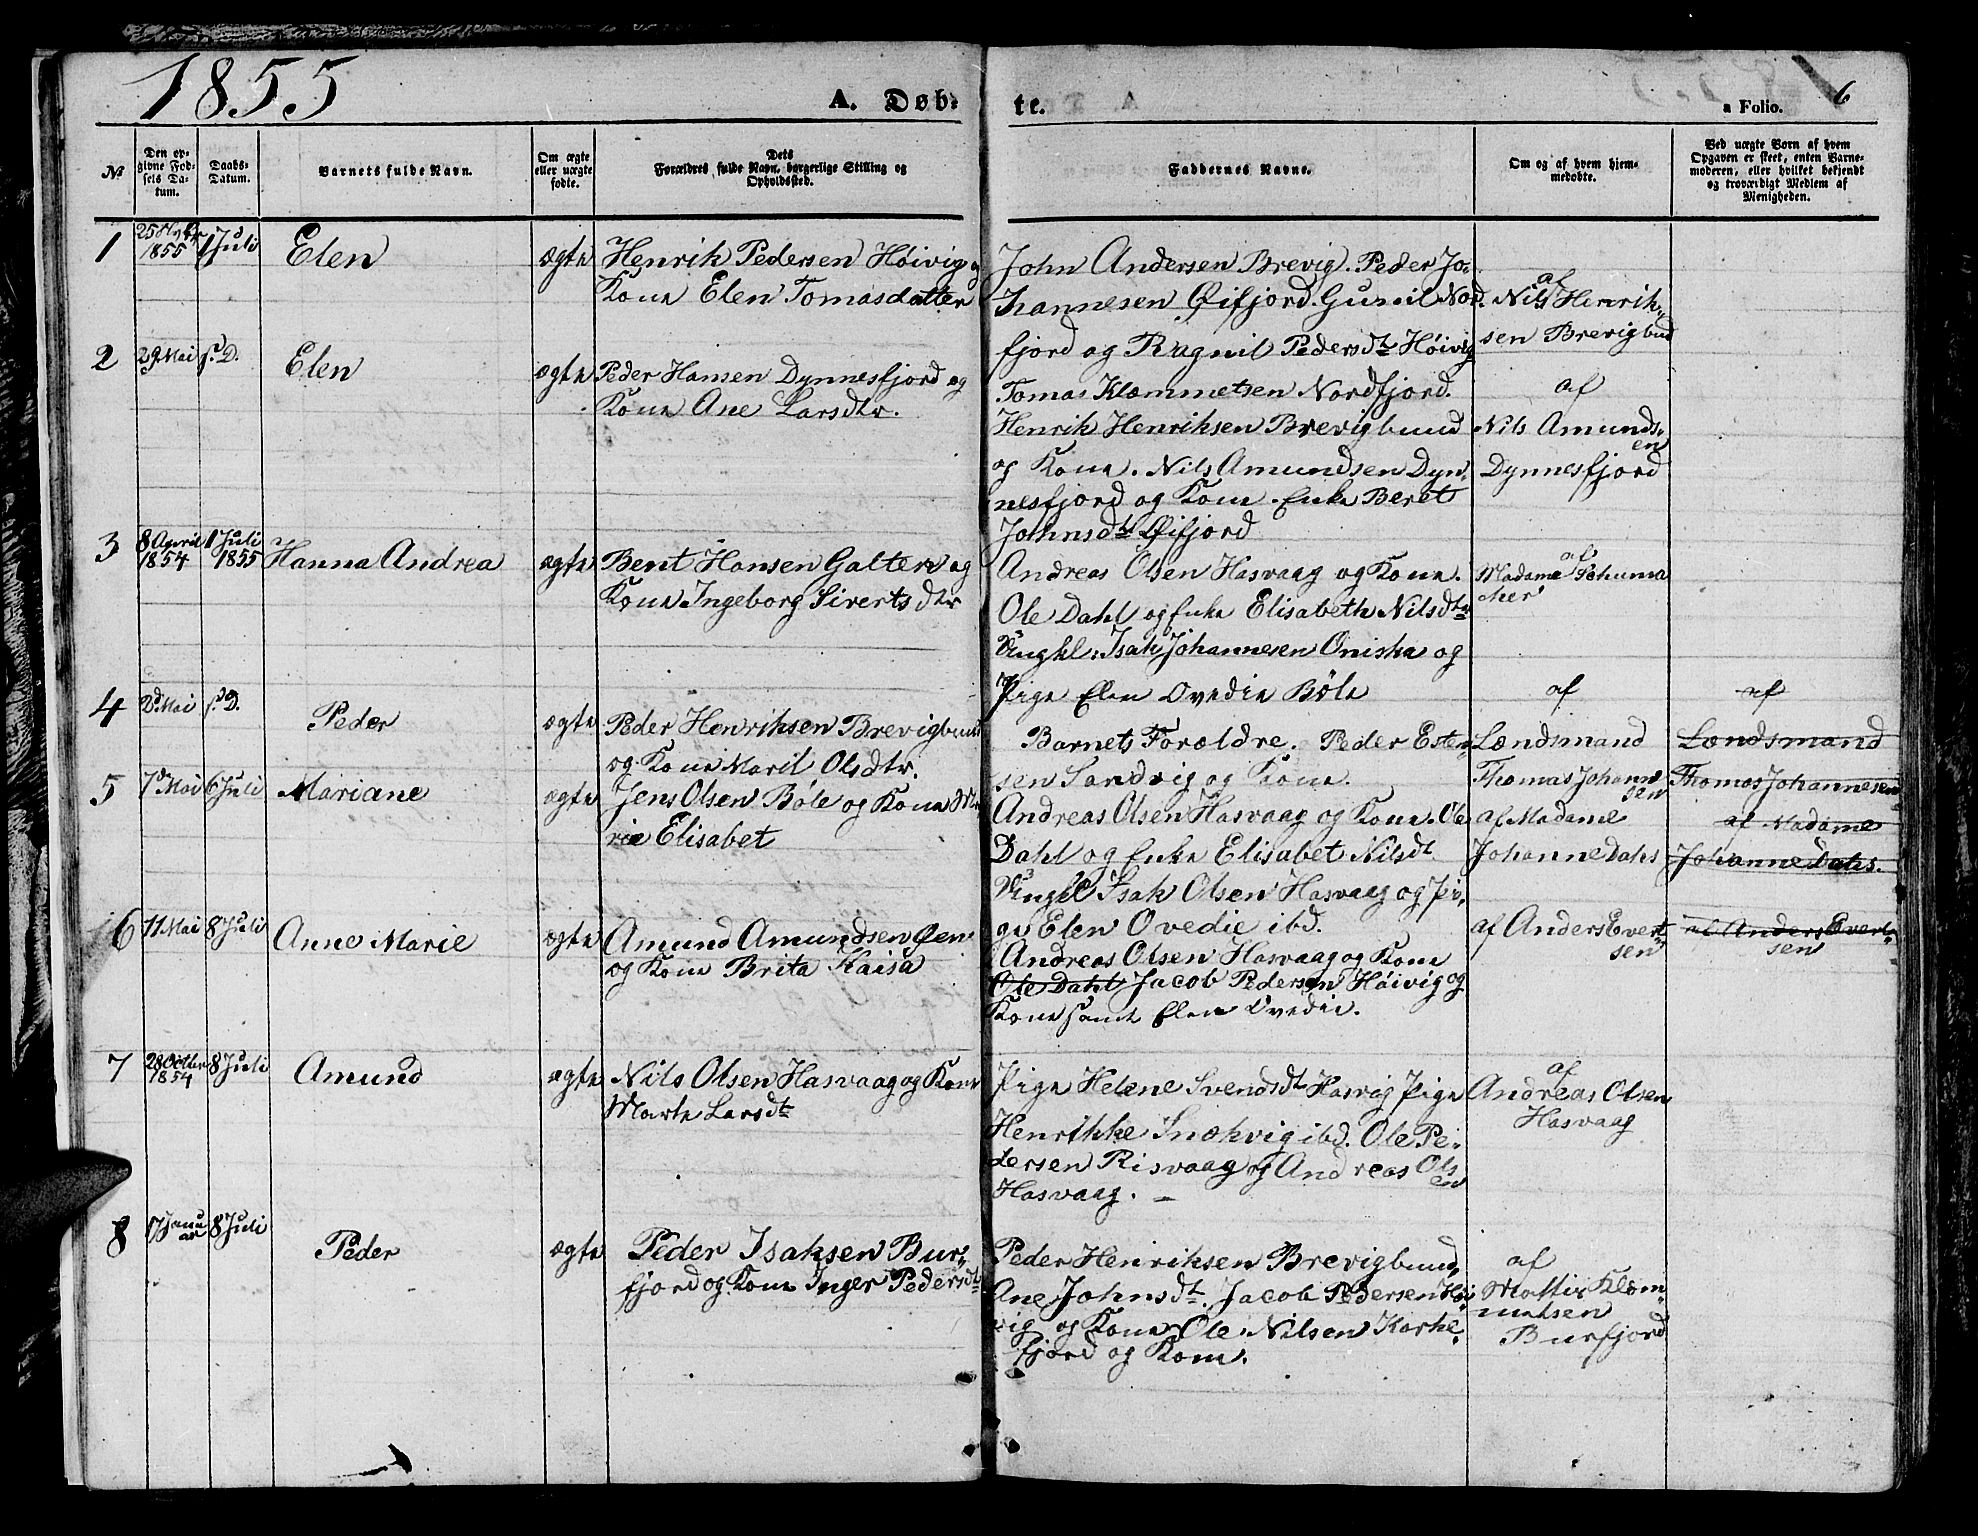 1855
A. Døb-
te.
a Folio.
6
№
Den op-
givne Fød-
sels Da-
tum.
Daabs-
Datum.
Barnets fulde Navn.
Om ægte
eller uægte
fødte.
Dets
Forældres fulde Navn, borgerlige Stilling og
Opholdssted.
Faddernes Navne.
Om og af hvem hjem-
medøbte.
Ved uægte Børn af hvem
Opgaven er skeet, enten Barne-
moderen, eller hvilket bekjendt
og troværdigt Medlem af
Menigheden.
1
1855
1 Juli
Elen
ægte
Henrik Pedersen Höivig og
Kone Elen Tomasdatter
John Andersen Brevig. Peder Jo-
hannesen Øifjord. Guril Nord-
fjord og Ragnil Pedersdt Höivig
af
Nils Henrik-
sen Brevigbund
2
29 Mai
s. D.
Elen
ægte
Peder Hansen Dynnesfjord og
Kone Ane Larsdtr.
Tomas Klemmetsen Nordfjord.
Henrik Henriksen Brevigbund
og Kone. Nils Amundsen Dyn-
nesfjord og Kone. Enke Beret
Johnsdt Øifjord
af
Nils Amunds-
en
Dynnesfjord
3
8 April
1854
1 Juli
1855
Hanna Andrea
ægte
Bent Hansen Galten og
Kone Ingeborg Sivertsdtr
Andreas Olsen Hasvaag og Kone.
Ole Dahl og Enke Elisabeth Nilsdtr
Ungkl: Isak Johannesen Oniska og
Pige Elen Ovedie Böle
af
Madame Schuma
cher
4
2d Mai
s. D.
Peder
ægte
Peder Henriksen Brevigbund
og Kone Marit Olsdtr.
Barnets Forældre. Peder Esten-
sen Sandvig og Kone.
af
Lændsmand
Thomas Johann
sen
af
Lændsmand
Thomas Johannesen
5
7d Mai
6 Juli
Mariane
ægte
Jens Olsen Böle og Kone Ma
rie Elisabet
Andreas Olsen Hasvaag og Kone. Ole
Dahl og Enke Elisabet Nilsdt
Ungkl Isak Olsen Hasvaag og Pi-
ge Elen Ovedie ibd.
af Madame
Johanne Dahs
af Madame
Johanne Dahs.
6
11 Mai
8 Juli
Anne Marie
ægte
Amund Amundsen Øen
og Kone Brita Kaisa
Andreas Olsen Hasvaag og Kone
Ole Dahl Jacob Pedersen Höivig og
Kone samt Elen Ovedie.
af Anders Evert-
sen
af Anders Evert-
sen
7
28 Octber
1854
8 Juli
Amund
ægte
Nils Olsen Hasvaag og Kone
Marte Larsdt
Pige Helene Svendsdt Hasvig Pige
Henrikke Snekvig ibd. Ole Pe-
dersen Risvaag og Andreas Ols
en
Hasvaag. —
af
Andreas Olsen
Hasvaag
8
17 Janu
ar
8 Juli
Peder
ægte
Peder Isaksen Bur-
fjord og Kone Inger Pedersdt
Peder Henriksen Brevigbund,
Ane Johnsdt. Jacob Pedersen Höi
vig og Kone. Ole Nilsen Korke-
fjord og Kone.
af
Mattis Klem-
metsen
Burfjord